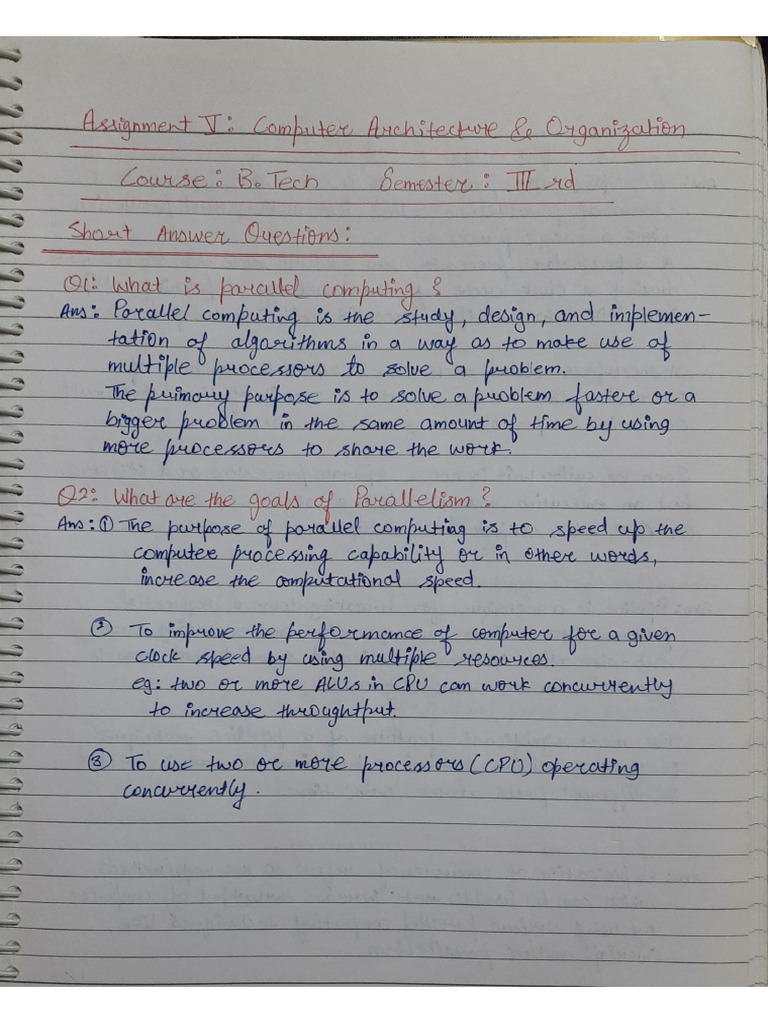 Assignment V: Computer Architecture & Organization
Course: B.Tech Semester: III rd
Short Answer Questions:
Q1: What is parallel computing?
Ans: Parallel computing is the study, design, and implemen-
tation of algorithms in a way as to make use of
multiple processors to solve a problem.
The primary purpose is to solve a problem faster or a
bigger problem in the same amount of time by using
more processors to share the work.
Q2: What are the goals of Parallelism?
Ans: ① The purpose of parallel computing is to speed up the
computer processing capability or in other words,
increase the computational speed.
② To improve the performance of computer for a given
clock speed by using multiple resources.
eg: two or more ALUs in CPU can work concurrently
to increase throughtput.
③ To use two or more processors (CPU) operating
concurrently.